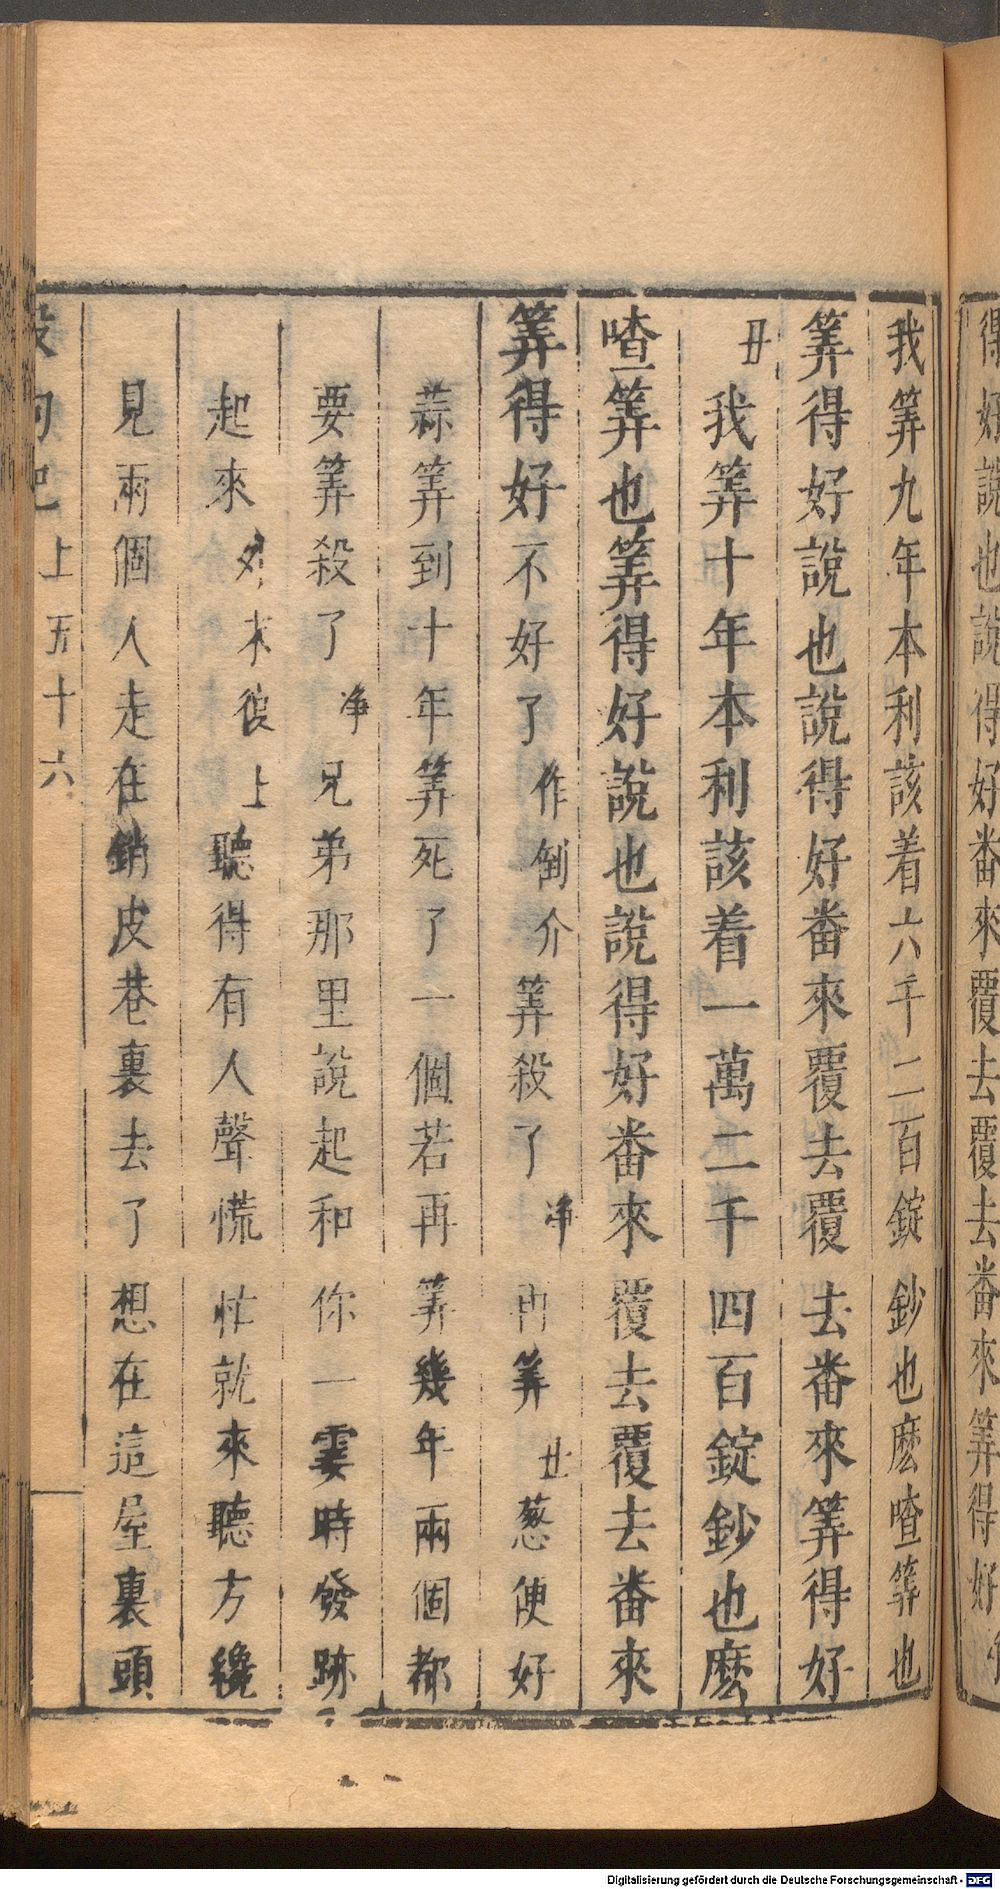 得好說也說得好畨來覆去覆去畨來筭得好
我筭九年本利該着六千二百錠鈔也麽喳筭也
筭得好說也說得好畨來覆去覆去畨來筭得好
丑我筭十年本利該着一萬二千四百錠鈔也麽
喳筭也筭得好說也說得好畨來覆去覆去畨來
筭得好不好了作倒介筭殺了净再筭丑葱便好
蒜筭到十年筭死了一個若再筭幾年兩個都
要筭殺了净兄弟那里說起和你一霎時發跡
起來外末後上聽得有人聲慌忙就來聽方纔
見兩個人走在銷皮巷裏去了想在這屋裏頭
殺狗記 上 五十六
Digitalisierung gefördert durch die Deutsche Forschungsgemeinschaft - DFG